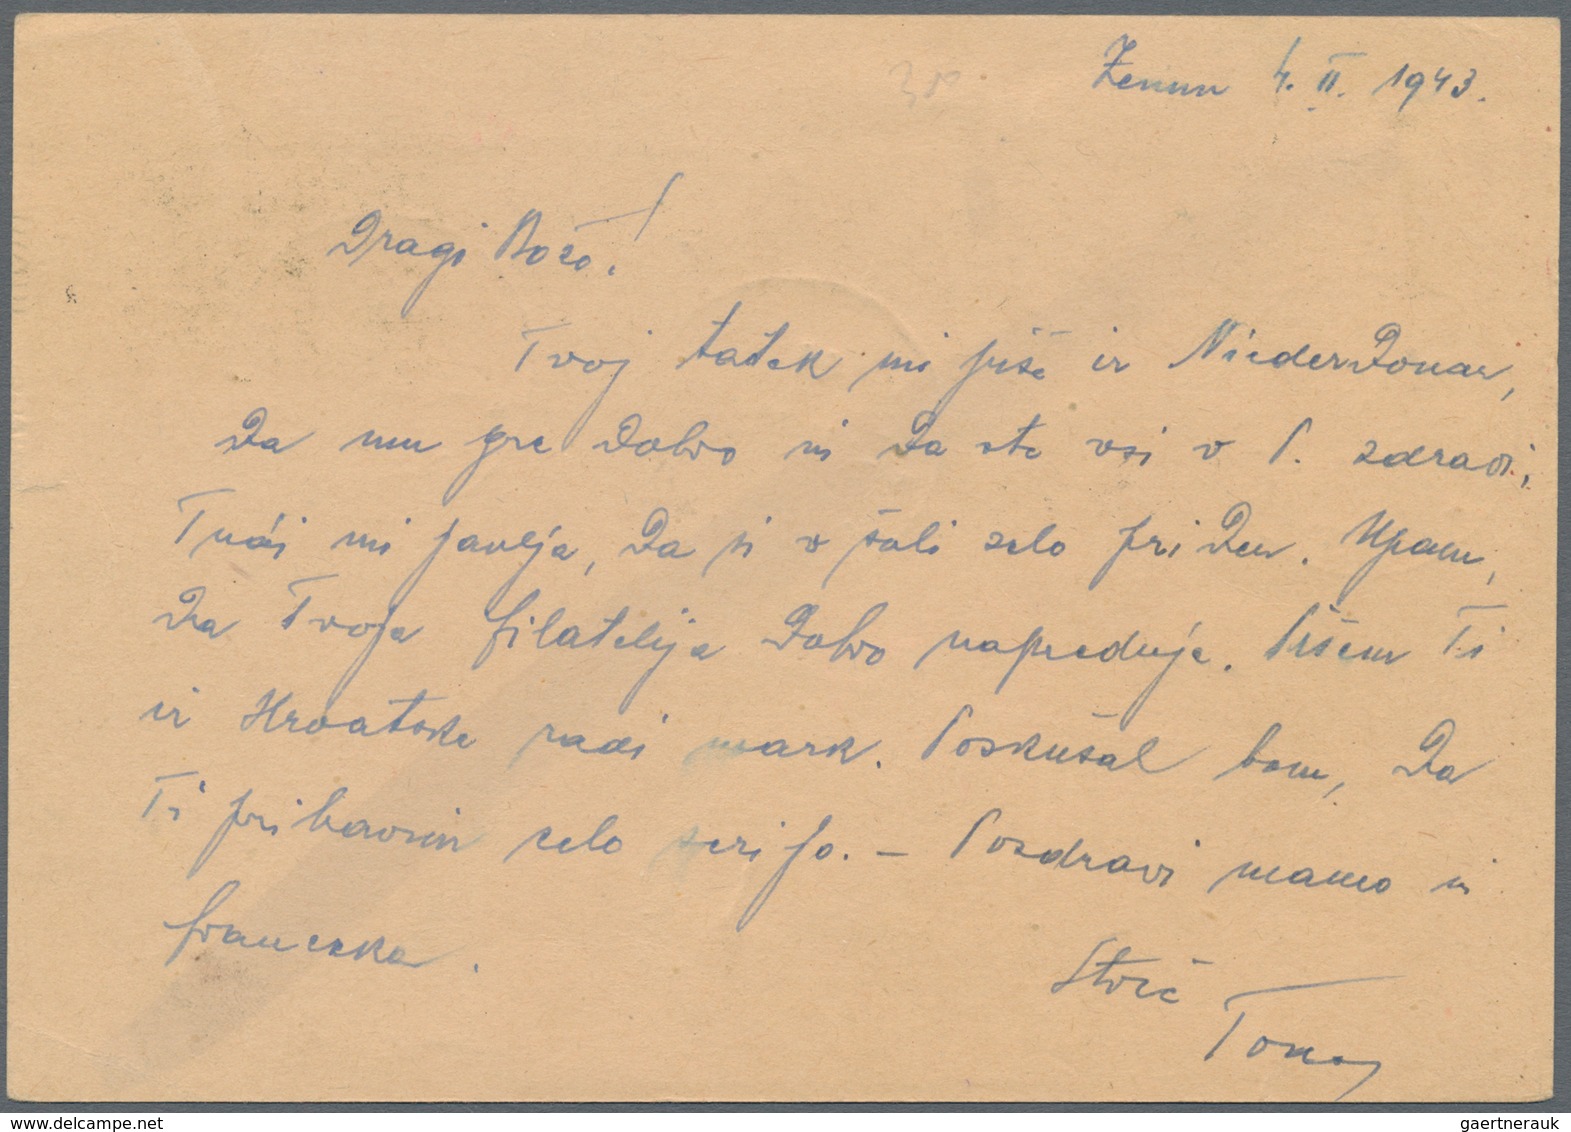 Zemun 4. II. 1943.
Dragi Božo!
Tvoj tatek mi piše iz Niederdonau,
da mu gre dobro in da ste vsi v P. zdravi,
Tudi mi javlja, da si v šoli zelo priden. Upam,
da Tvoja filatelija dobro napreduje. Pišem Ti
iz Hrvatske radi mark. Poskušal bom, da
Ti pribavim celo serijo. – Pozdravi mamo in
Franceka.
Stric
delcampe.net
gaertnerauk